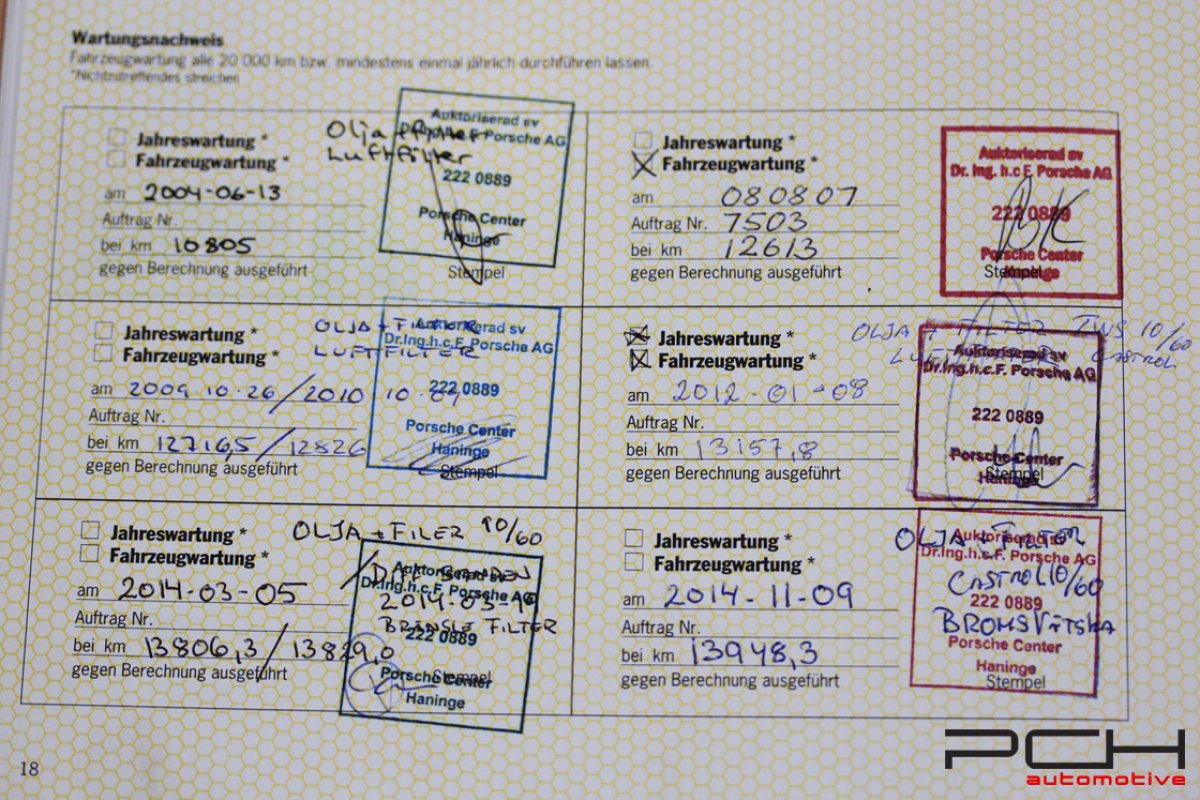 Wartungsnachweis
Fahrzeugwartung alle 20 000 km bzw. mindestens einmal jährlich durchführen lassen.
*Nichtzutreffendes streichen
Jahreswartung *
Fahrzeugwartung *
Olja
Luftfilter
am 2004-06-13
Auftrag Nr.
bei km 10805
gegen Berechnung ausgeführt
Auktoriserad sv
F. Porsche AG
222 0889
Porsche Center
Haninge
Stempel
Jahreswartung *
Fahrzeugwartung *
am 080807
Auftrag Nr. 7503
bei km 12613
gegen Berechnung ausgeführt
Auktoriserad sv
Dr. Ing. h.c F. Porsche AG
222 0889
Porsche Center
Stempel
Jahreswartung *
Fahrzeugwartung *
OLJA + FILTER
LUFTFILTER
am 2009.10.26/2010 10.
Auftrag Nr.
bei km 12716,5/12826
gegen Berechnung ausgeführt
Auktoriserad sv
Dr.Ing.h.c.F. Porsche AG
222 0889
Porsche Center
Haninge
Stempel
Jahreswartung *
Fahrzeugwartung *
OLJA + FILTER TWS 10/60
LUFTFILTER CASTROL
am 2012-01-08
Auftrag Nr.
bei km 13157,8
gegen Berechnung ausgeführt
Auktoriserad sv
Dr.Ing.h.c.F. Porsche AG
222 0889
Porsche Center
Haninge
Stempel
Jahreswartung *
Fahrzeugwartung *
OLJA + FILER 10/60
am 2014-03-05
Auftrag Nr.
2014-03-
BRÄNSLE FILTER
bei km 13806,3/13829,0
gegen Berechnung ausgeführt
Auktoriserad sv
Dr.Ing.h.c.F. Porsche AG
222 0889
Porsche Center
Haninge
Stempel
Jahreswartung *
Fahrzeugwartung *
OLJA + FILTER
CASTROL 10/60
BROMSVÄTSKA
am 2014-11-09
Auftrag Nr.
bei km 13948,3
gegen Berechnung ausgeführt
Auktoriserad sv
Dr.Ing.h.c.F. Porsche AG
222 0889
Porsche Center
Haninge
Stempel
18
PCH
automotive